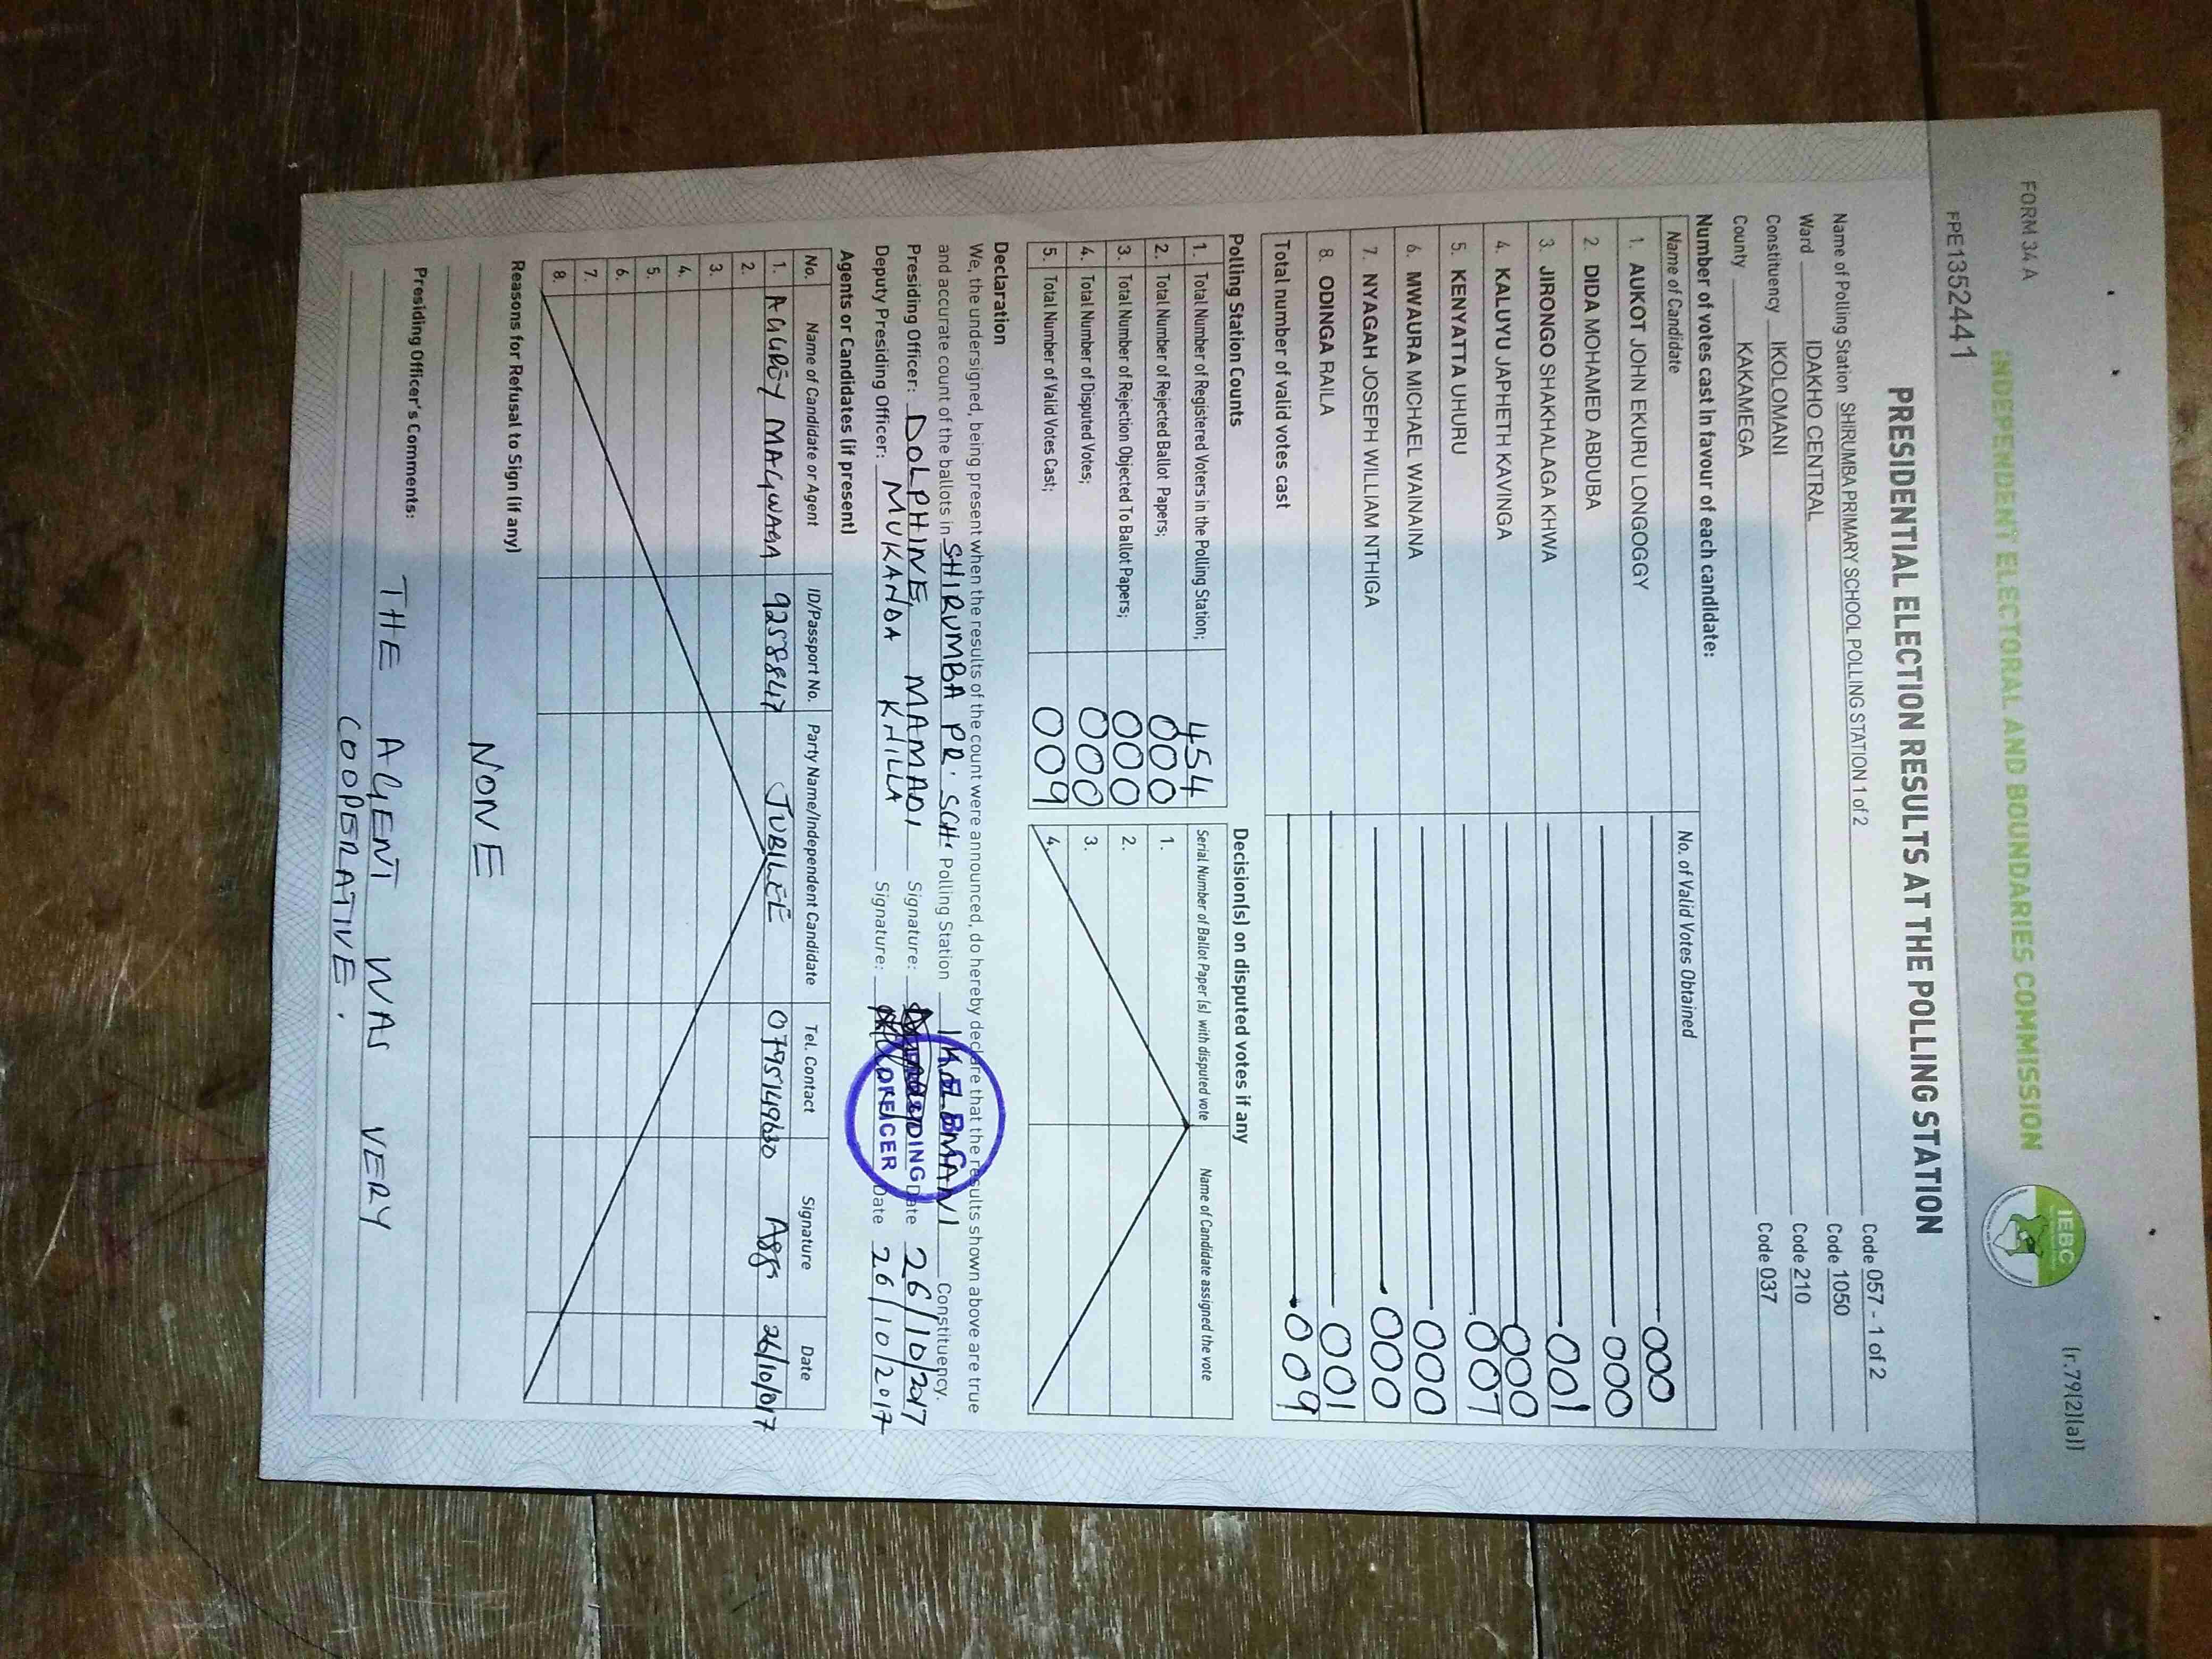 FORM 34 A
(r.79(2)(a))
INDEPENDENT ELECTORAL AND BOUNDARIES COMMISSION
IEBC
FPE1352441
PRESIDENTIAL ELECTION RESULTS AT THE POLLING STATION
Name of Polling Station SHIRUMBA PRIMARY SCHOOL POLLING STATION 1 of 2 Code 057 - 1 of 2
Ward IDAKHO CENTRAL Code 1050
Constituency IKOLOMANI Code 210
County KAKAMEGA Code 037
Number of votes cast in favour of each candidate:
Name of Candidate No. of Valid Votes Obtained
1. AUKOT JOHN EKURU LONGOGGY 000
2. DIDA MOHAMED ABDUBA 000
3. JIRONGO SHAKHALAGA KHWA 001
4. KALUYU JAPHETH KAVINGA 000
5. KENYATTA UHURU 007
6. MWAURA MICHAEL WAINAINA 000
7. NYAGAH JOSEPH WILLIAM NTHIGA 000
8. ODINGA RAILA 001
Total number of valid votes cast 009
Polling Station Counts
1. Total Number of Registered Voters in the Polling Station; 454
2. Total Number of Rejected Ballot Papers; 000
3. Total Number of Rejection Objected To Ballot Papers; 000
4. Total Number of Disputed Votes; 000
5. Total Number of Valid Votes Cast; 009
Decision(s) on disputed votes if any
Serial Number of Ballot Paper (s) with disputed vote Name of Candidate assigned the vote
1.
2.
3.
4.
Declaration
We, the undersigned, being present when the results of the count were announced, do hereby declare that the results shown above are true
and accurate count of the ballots in SHIRUMBA PR. SCH Polling Station IKOLOMANI Constituency.
Presiding Officer: DOLPHINE MAMADI Signature: Date 26/10/2017
Deputy Presiding Officer: MUKANDA KHILLA Signature: Date 26/10/2017
OFFICER
Agents or Candidates (if present)
No. Name of Candidate or Agent ID/Passport No. Party Name/Independent Candidate Tel. Contact Signature Date
1. AGGREY MAGWAGA 9258847 JUBILEE 0795149630 Aggs 26/10/017
2.
3.
4.
5.
6.
7.
8.
Reasons for Refusal to Sign (if any)
NONE
Presiding Officer's Comments:
THE AGENT WAS VERY
COOPERATIVE.